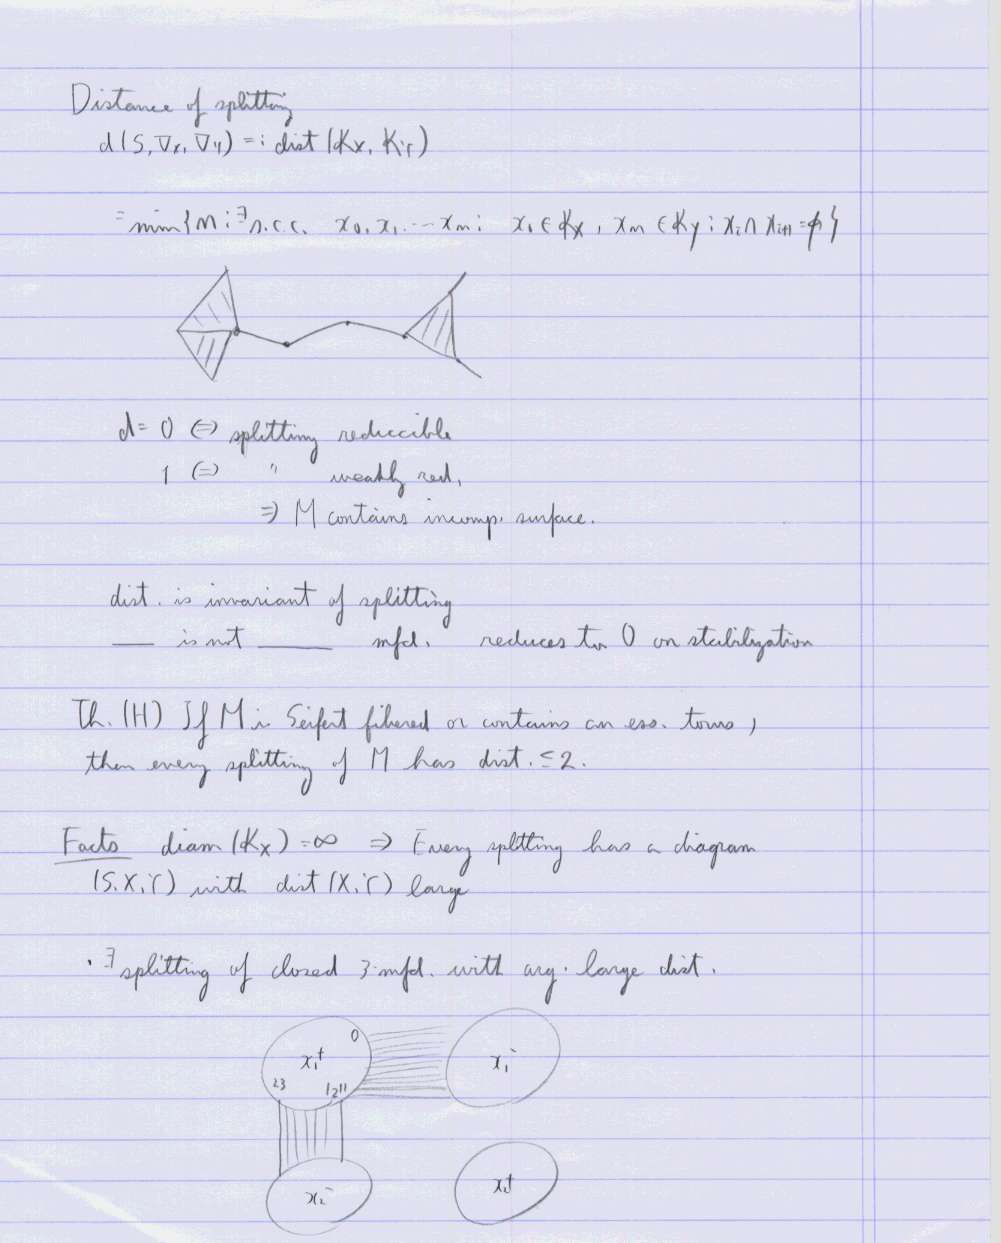 Distance of splitting
d(S, ∇x, ∇y) =: dist (Kx, KY)
= min{m : ∃ s.c.c. x0, x1 ... xm : x0 ∈ Kx, xm ∈ Ky : xi ∩ xi+1 = ϕ}
d = 0 ⇔ splitting reduccible
1 ⇔ " weakly red.
⇒ M contains incomp. surface.
dist. is invariant of splitting
—— is not ——— mfd. reduces to 0 on stabilization
Th. (H) If M is Seifert fibered or contains an ess. torus,
then every splitting of M has dist. ≤ 2.
Facts diam (Kx) = ∞ ⇒ Every splitting has a diagram
(S, X, Y) with dist (X, Y) large
· ∃ splitting of closed 3-mfd. with arg. large dist.
0
x1+ x1-
23 12 11
x2- x2+